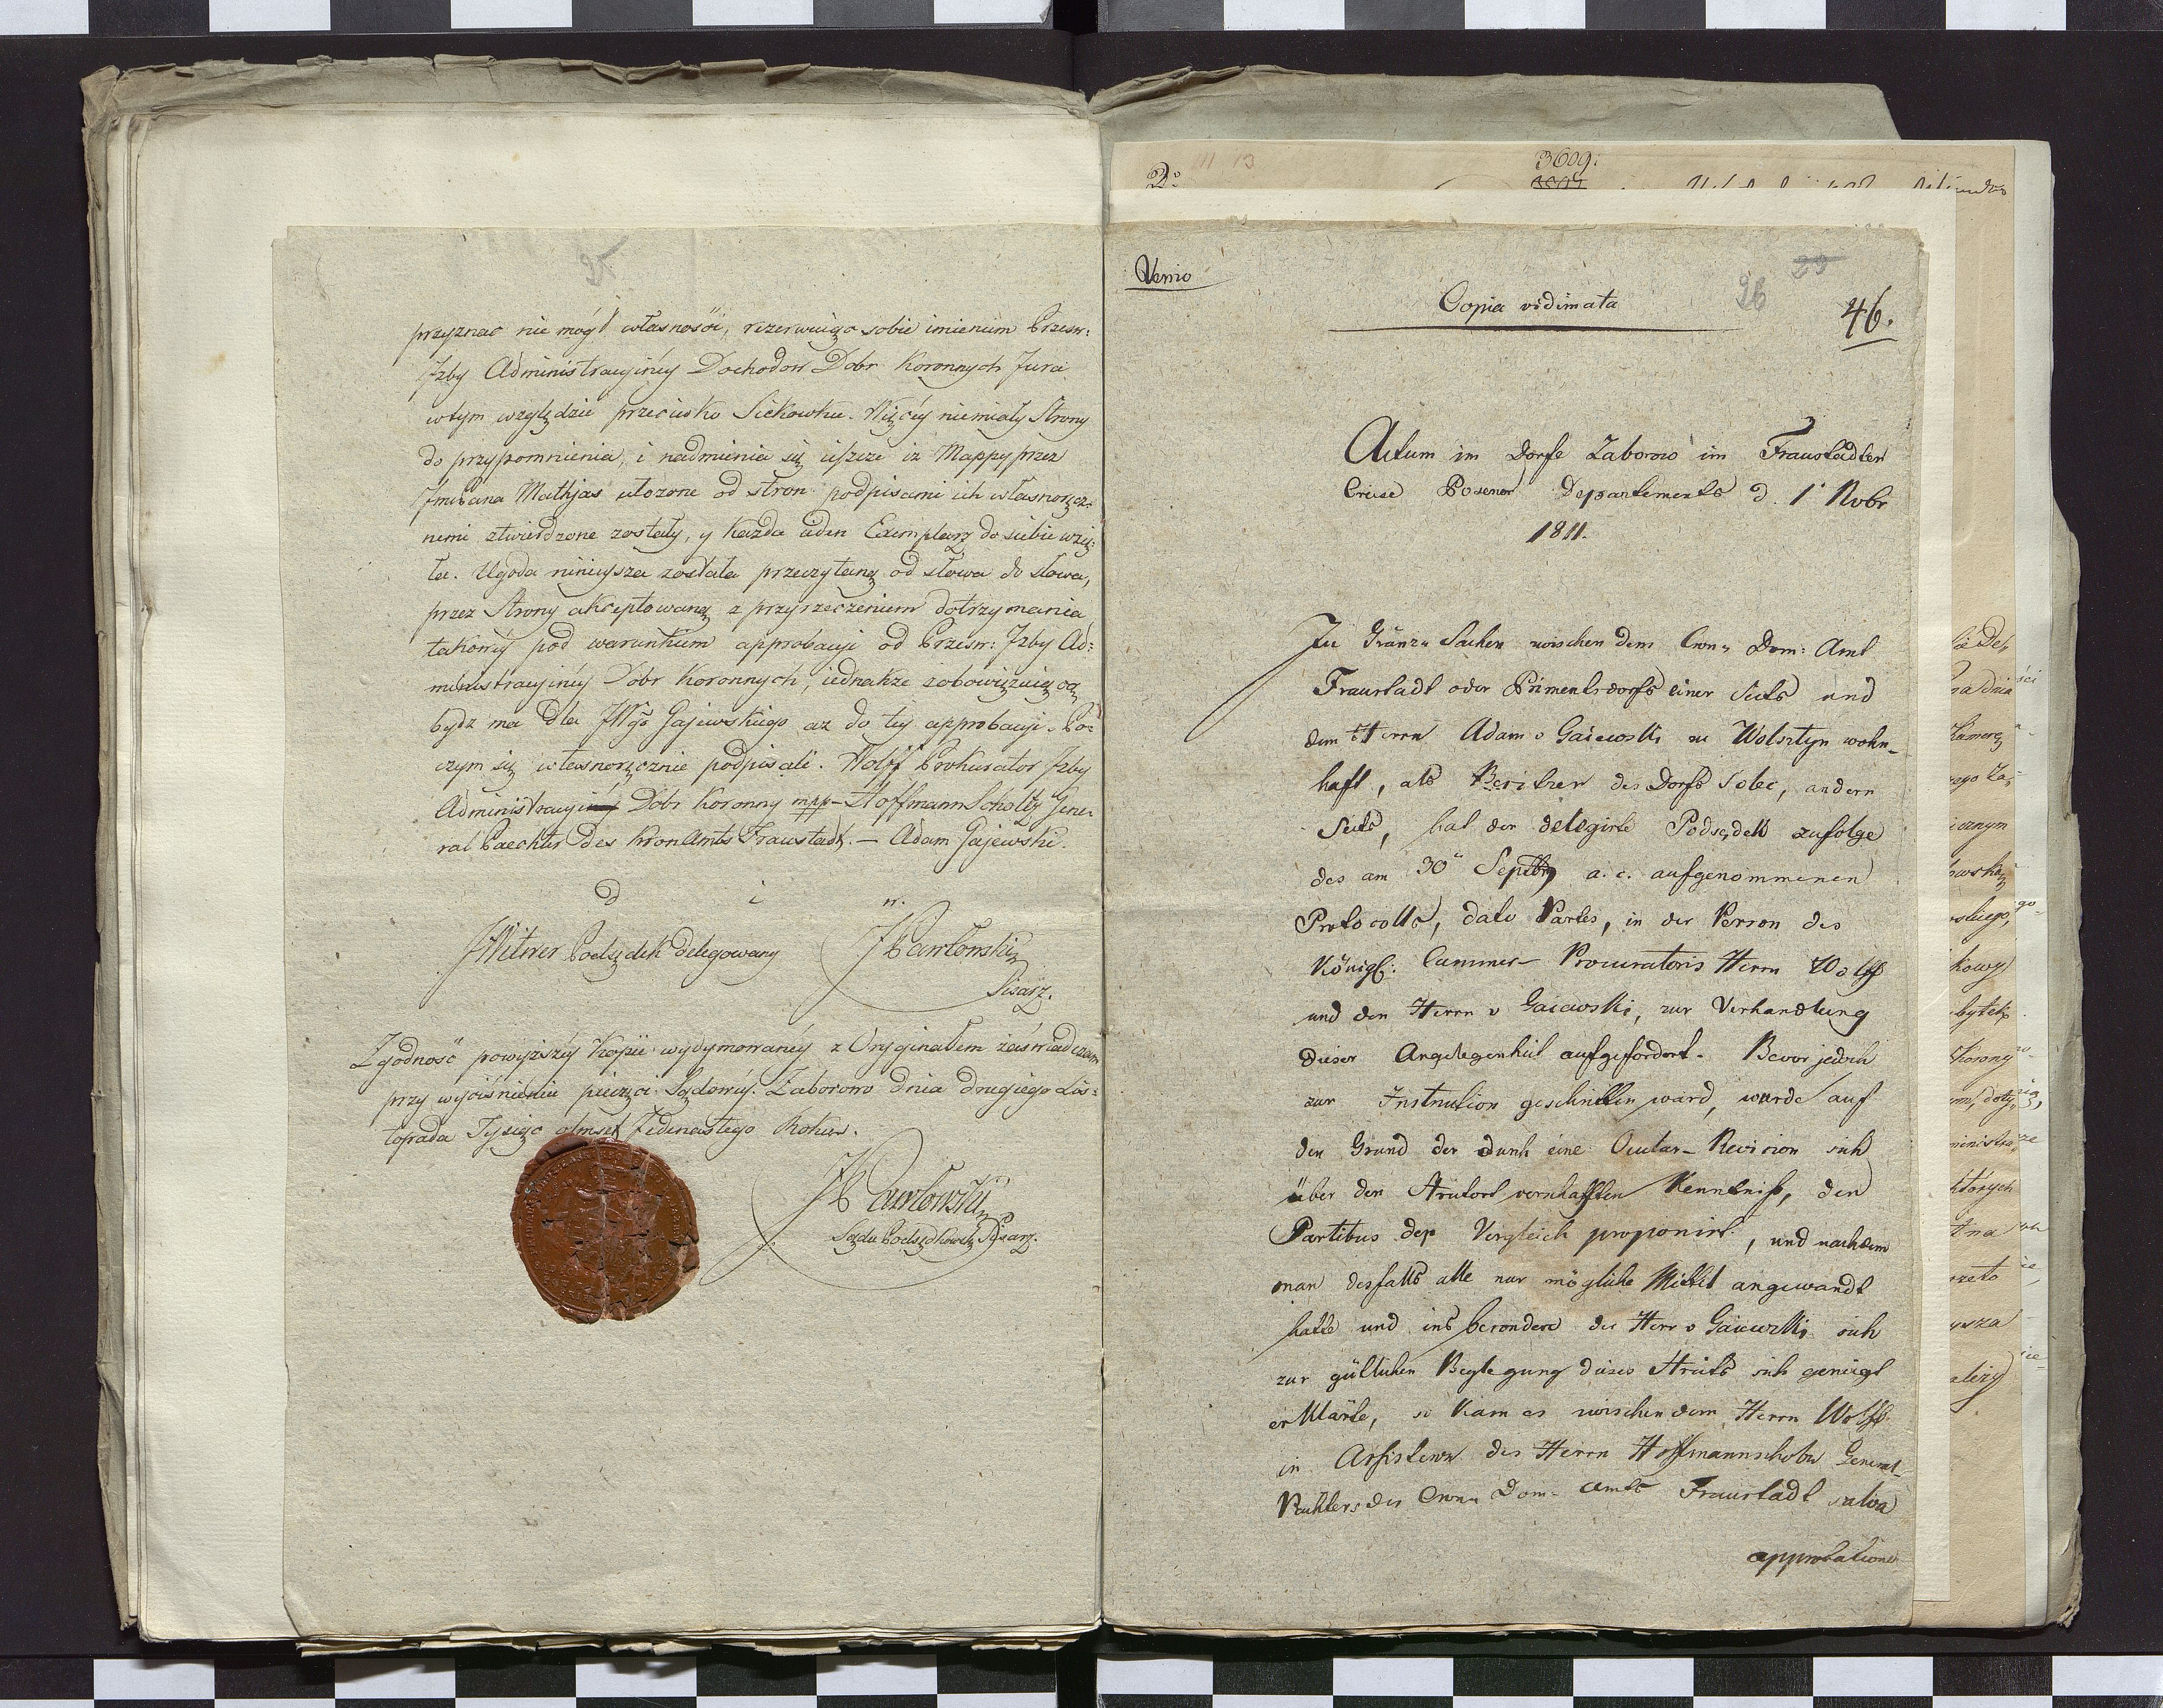 25
przyznać nie mógł własności, rezerwuiąc sobie imieniem Przesw:
Izby Administracyiney Dochodow Dobr Koronnych Jura
wtym względzie przeciwko Siekowku. Więcéy niemiały Strony
do przypomnienia, i nadmienia się ieszcze iż Mappy przez
Jmć Pana Mathjas ułozone od stron podpisami ich własnoręcz-
nemi ztwierdzone zostały, y każda ieden Exemplarz do siebie wzię-
ła. Ugoda ninieysza została przeczytaną od słowa do słowa,
przez Strony akceptowaną z przyrzeczeniem dotrzymania
takowéy pod warunkiem approbacyi od Przesw: Izby Ad:
ministracyinéy Dobr Koronnych, iednakże zobowiązuiącą
bydz ma dla JWgo Gajewskiego aż do téy approbacyi. Po-
czym się własnoręcznie podpisali. Wolff Prokurator Izby
Administracyinéy Dobr Koronny mpp – Hoffmann Scholtz Gene-
ral Paechter des Kron Amts Fraustadt. – Adam Gajewski.
d i n.
JWitwer Podsędek delegowany JPawłowski
Pisarz.
Zgodność powyższéy Kopii wydymowanéy z Oryginałem zaświadczam
przy wyciśnieniu pieczęci Sądowéy. Zaborowo dnia drugiego Lis-
topada Tysiąc ośmset Jedenastego Roku.
JPawłowski
Sądu Podsędkowsk Pisarz.
2:
III 13
3609:
Versio
Copia vidimata
26
29
46.
Actum im Dorfe Zaborowo im Fraustädter
Creise Posener Departements d. 1t Nobr
1811.
In Gränz Sachen zwischen dem Cron Dom: Amt
Fraustadt oder Primentsdorfs einer Seits und
dem Herrn Adam v Gaiewski zu Wolsztyn wohn-
haft, als Besitzer des Dorfs Solec, andern
Seits, hat der delegirte Podsędek zufolge
des am 30t Septbr a. c. aufgenommenen
Protocolls, dato Partes, in der Person des
Königl: Cammer- Procuratoris Herrn Wolff
und den Herrn v Gaiewski, zur Verhandlung
dieser Angelegenheit aufgefordert. Bevor jedoch
zur Instruction geschritten ward, wurde auf
den Grund der durch eine Ocular- Revision sich
über den Streitort verschafften Kenntniß, den
Partibus der Vergleich proponirt, und nachdem
man desfalls alle nur mögliche Mittel angewandt
hatte und ins besondere der Herr v Gaiewski sich
zur gütlichen Beylegung dieses Streits sich geneigt
erklärte, so kam es zwischen dem Herrn Wolff
in Assistenz des Herrn Hoffmannscholtz General-
Pächters des Cron Dom- Amts Fraustadt salva
approbatione